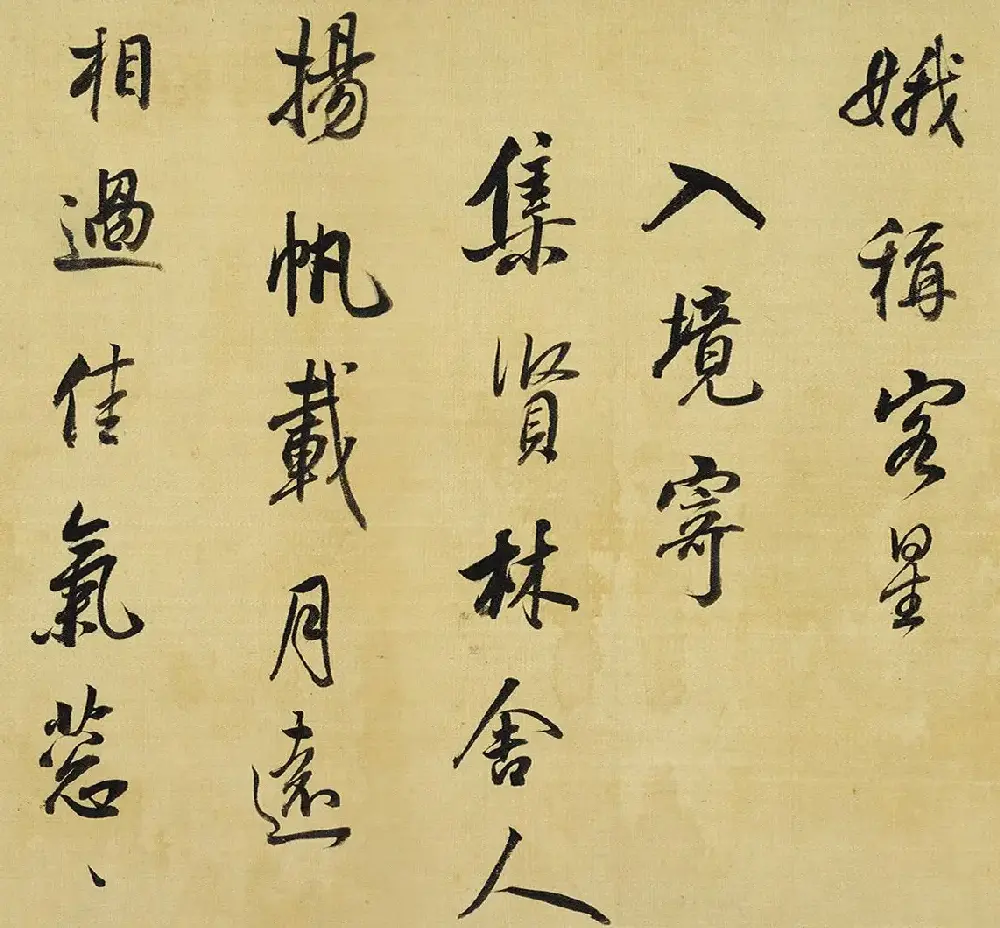 娥稱客星
入境寄
集賢林舍人
揚帆載月遠
相過佳氣葱、